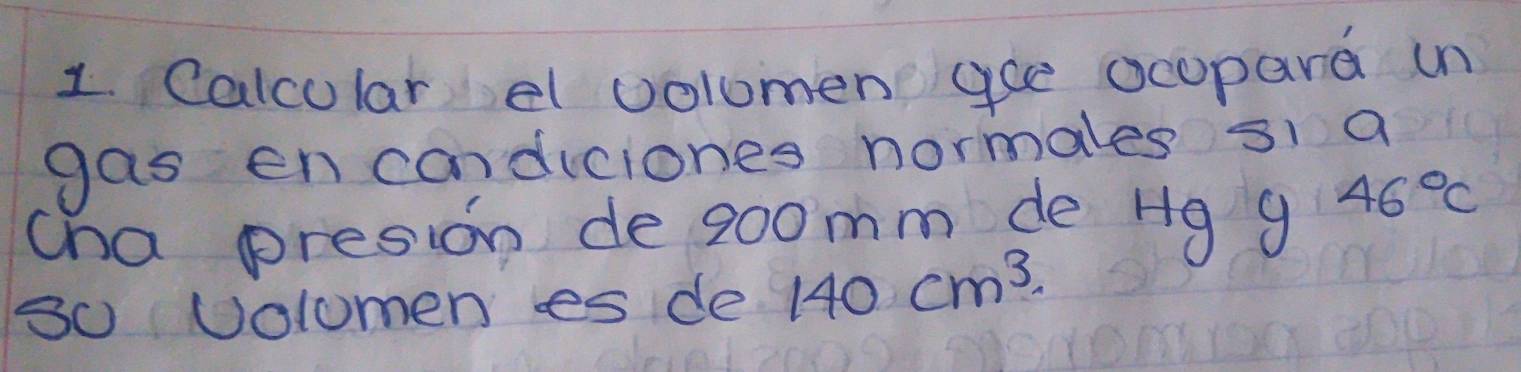 1. Calcular el volumen que ocupará un
gas en condiciones normales si a
una presión de 900 mm de Hg y 46°C
su volumen es de 140 cm³.